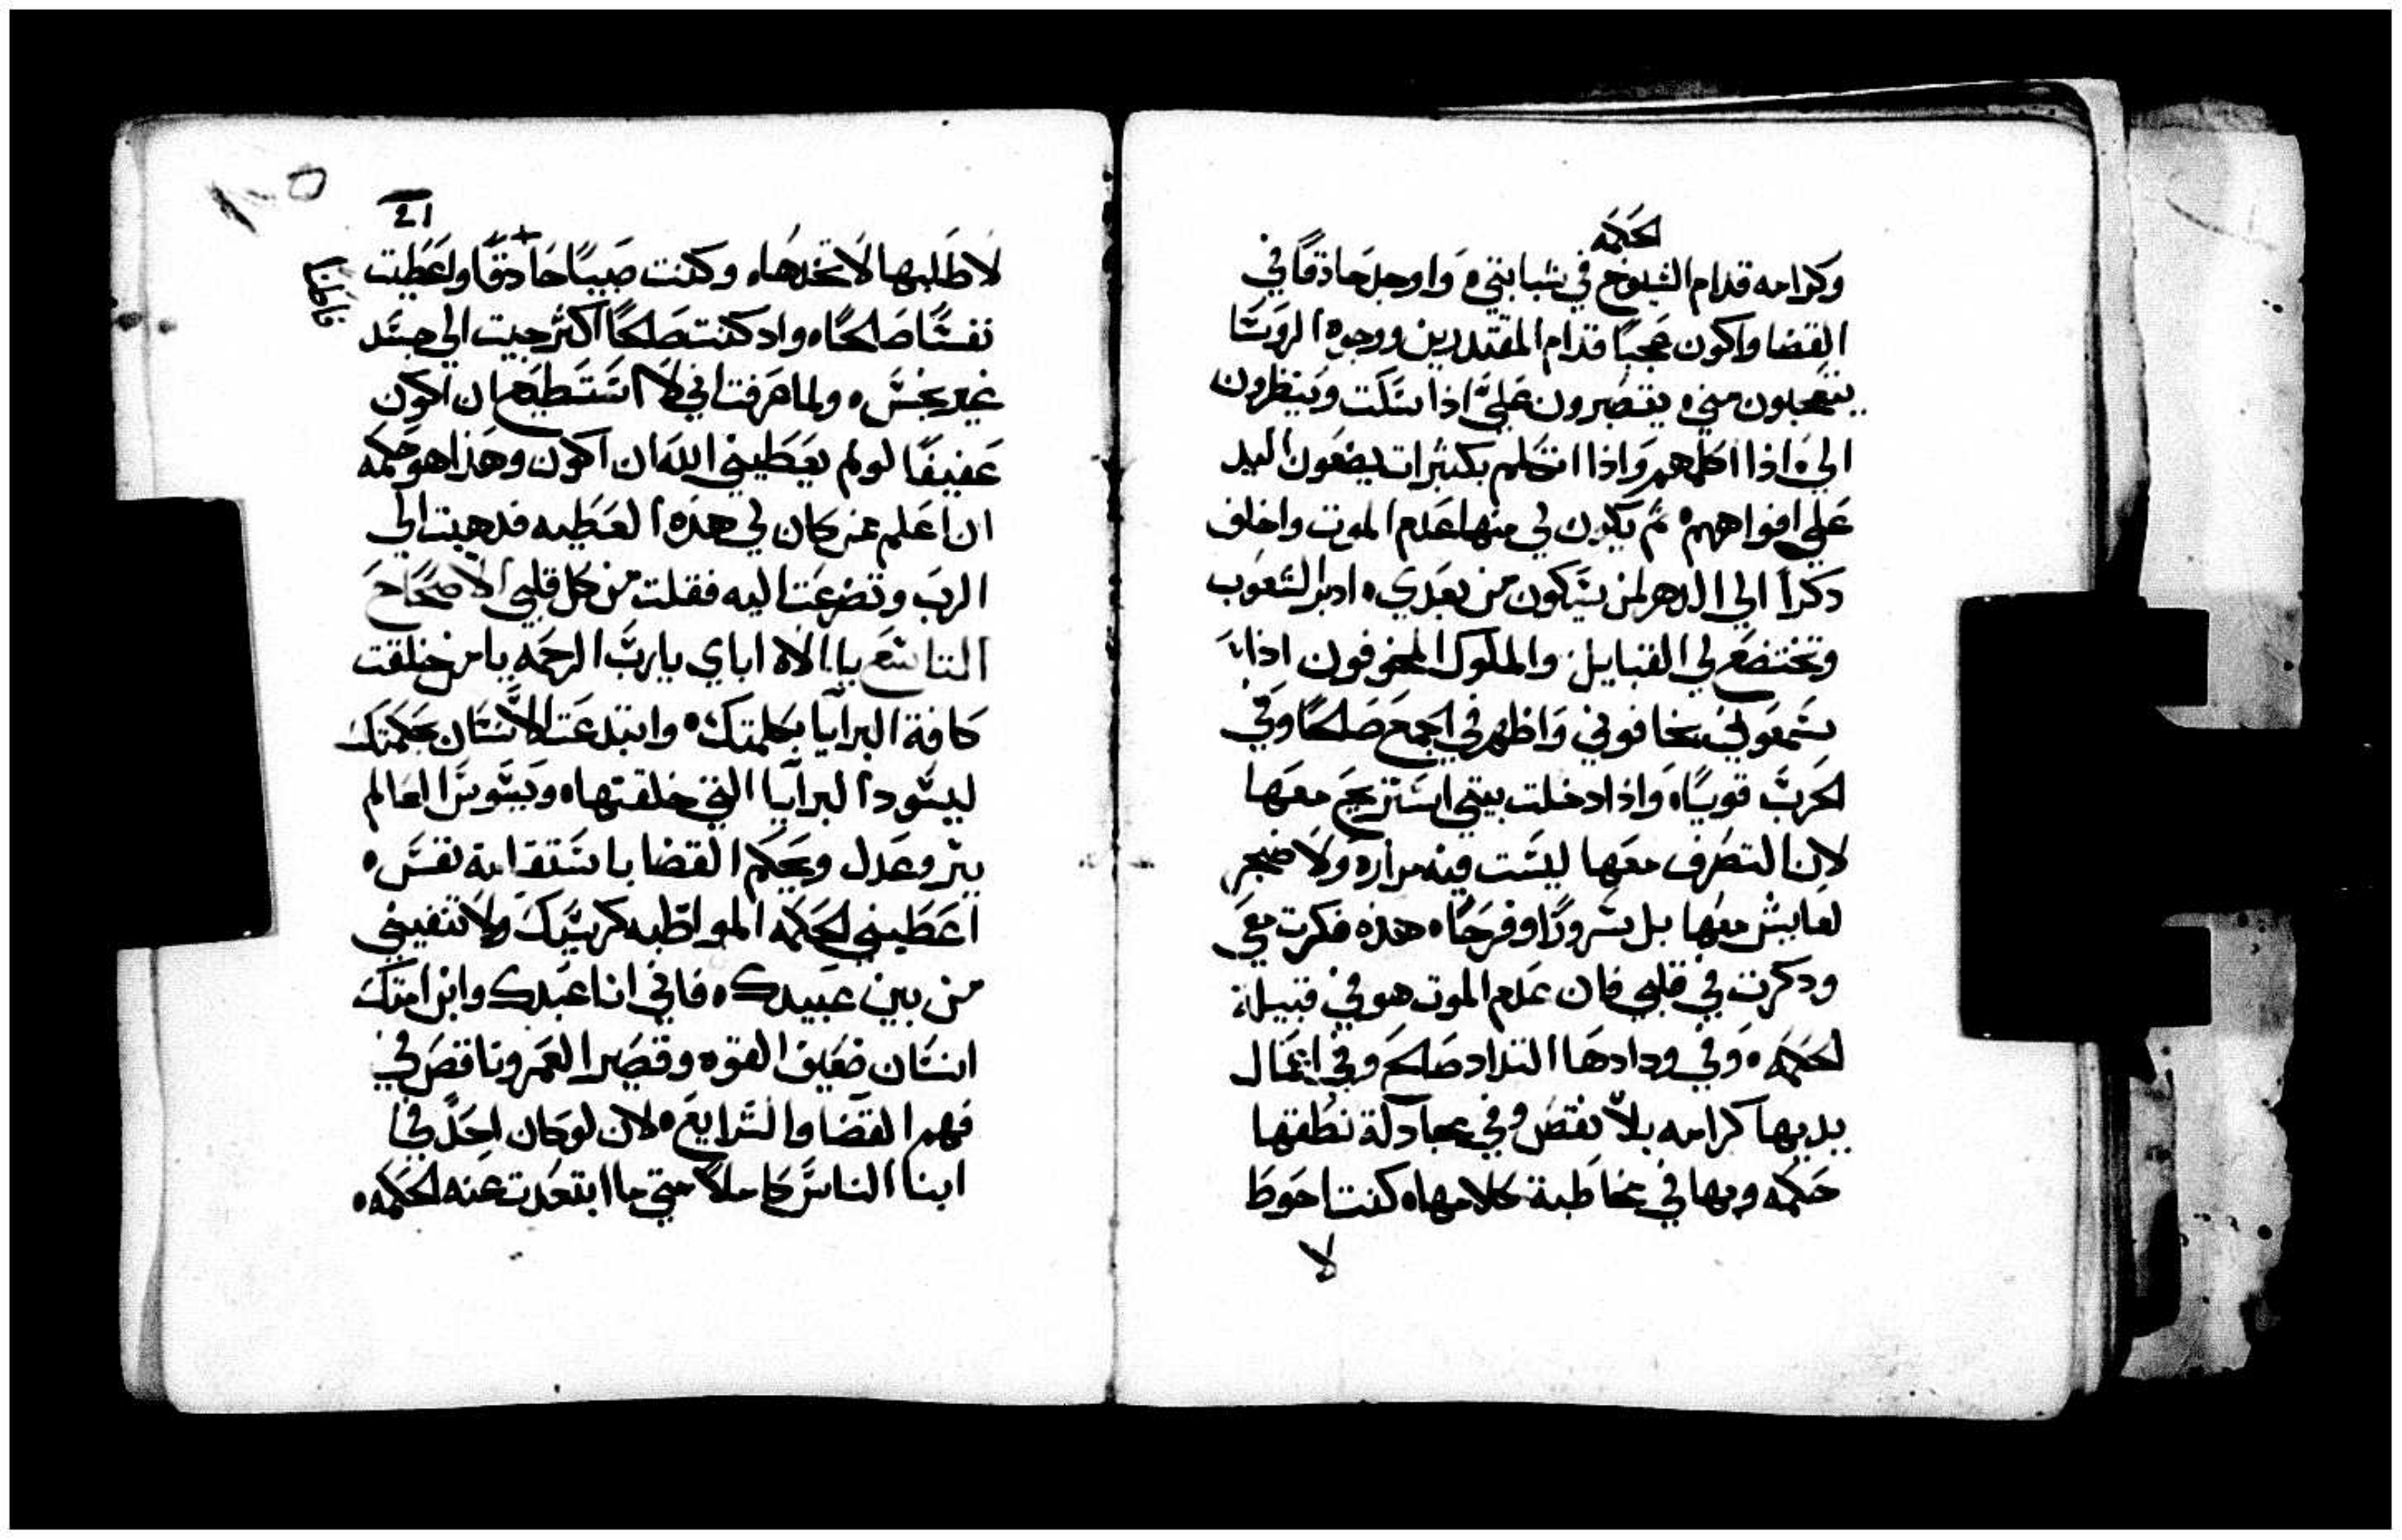 الحكمه
وكرامه قدام الشيوخ في شبابتي، واوجد حادقًا في
القضا واكون عجيبًا قدام المقتدرين ووجوه الروسا
يتعجبون مني، ينتصبرون عليّ اذا سكت وينظرون
الي، اذا اكلمهم واذا اتكلم بكثيرات يضعون اليد
علي افواههم، ثم يكون لي منها عدم الموت واخلف
دكرًا الي الدهر لمن سيكون من بعدي، ادبر الشعوب
وتختضع لي القبايل والملوك المخوفون اذا
سمعوني يخافوني واظهر في الجمع صالحًا وفي
الحرب قويًا، واذا دخلت بيتي استريح معها
لان التصرف معها ليست فيه مراره ولا ضجر
لعايش معها بل سرورًا وفرحًا، هذه فكرت معي
ودكرت في قلبي فان عدم الموت هو في قبيلة
الحكمه، وفي ودادها التداد صالح وفي اعمال
يديها كرامه بلا نقص وفي مجادلة نطقها
حكمه وبها في مخاطبة كلامها، كنت احوط
لا
21
لاطلبها لاتخدها، وكنت صبيًا حادقًا واعطيت
نفسًا صالحًا، واد كنت صالحًا اكثر جيت الي جسد
غير نجس، ولما عرفت اني لا استطيع ان اكون
عفيفًا لو لم يعطيني الله ان اكون وهذا هو حكمه
ان اعلم عمن كان لي هذه العطيه فدهبت الي
الرب وتضرعت اليه فقلت من كل قلبي الاصحاح
التاسع يا الاه اباي يا رب الرحمه يا من خلقت
كافة البرايا بكلمتك، وابتدعت الانسان بحكمتك
ليسود البرايا التي خلقتها، ويسوس العالم
ببر وعدل ويحكم القضا باستقامة نفس،
اعطيني الحكمه المواظبه كرسيك ولا تنفيني
من بين عبيدك، فاني انا عبدك وابن امتك
انسان ضعيف القوه وقصير العمر وناقص في
فهم القضا والشرايع، لان لو كان احد في
ابنا الناس كاملًا متي ما ابتعدت عنه الحكمه،